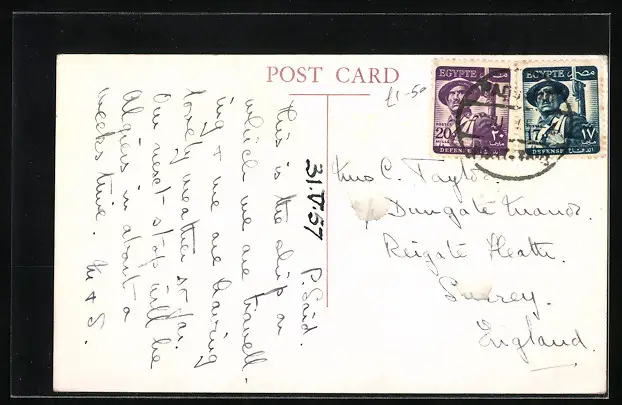 POST CARD
£1-50
31.V.57
P. Said.
This is the ship on
which we are travell-
ing + we are having
lovely weather so far.
Our next stop will be
Algiers in about a
weeks time. M + S.
EGYPTE مصر
20 ٢٠
DEFENSE
EGYPTE مصر
17 ١٧
DEFENSE
C. Taylor.
Dungate Manor.
Reigate Heath.
Surrey.
England.